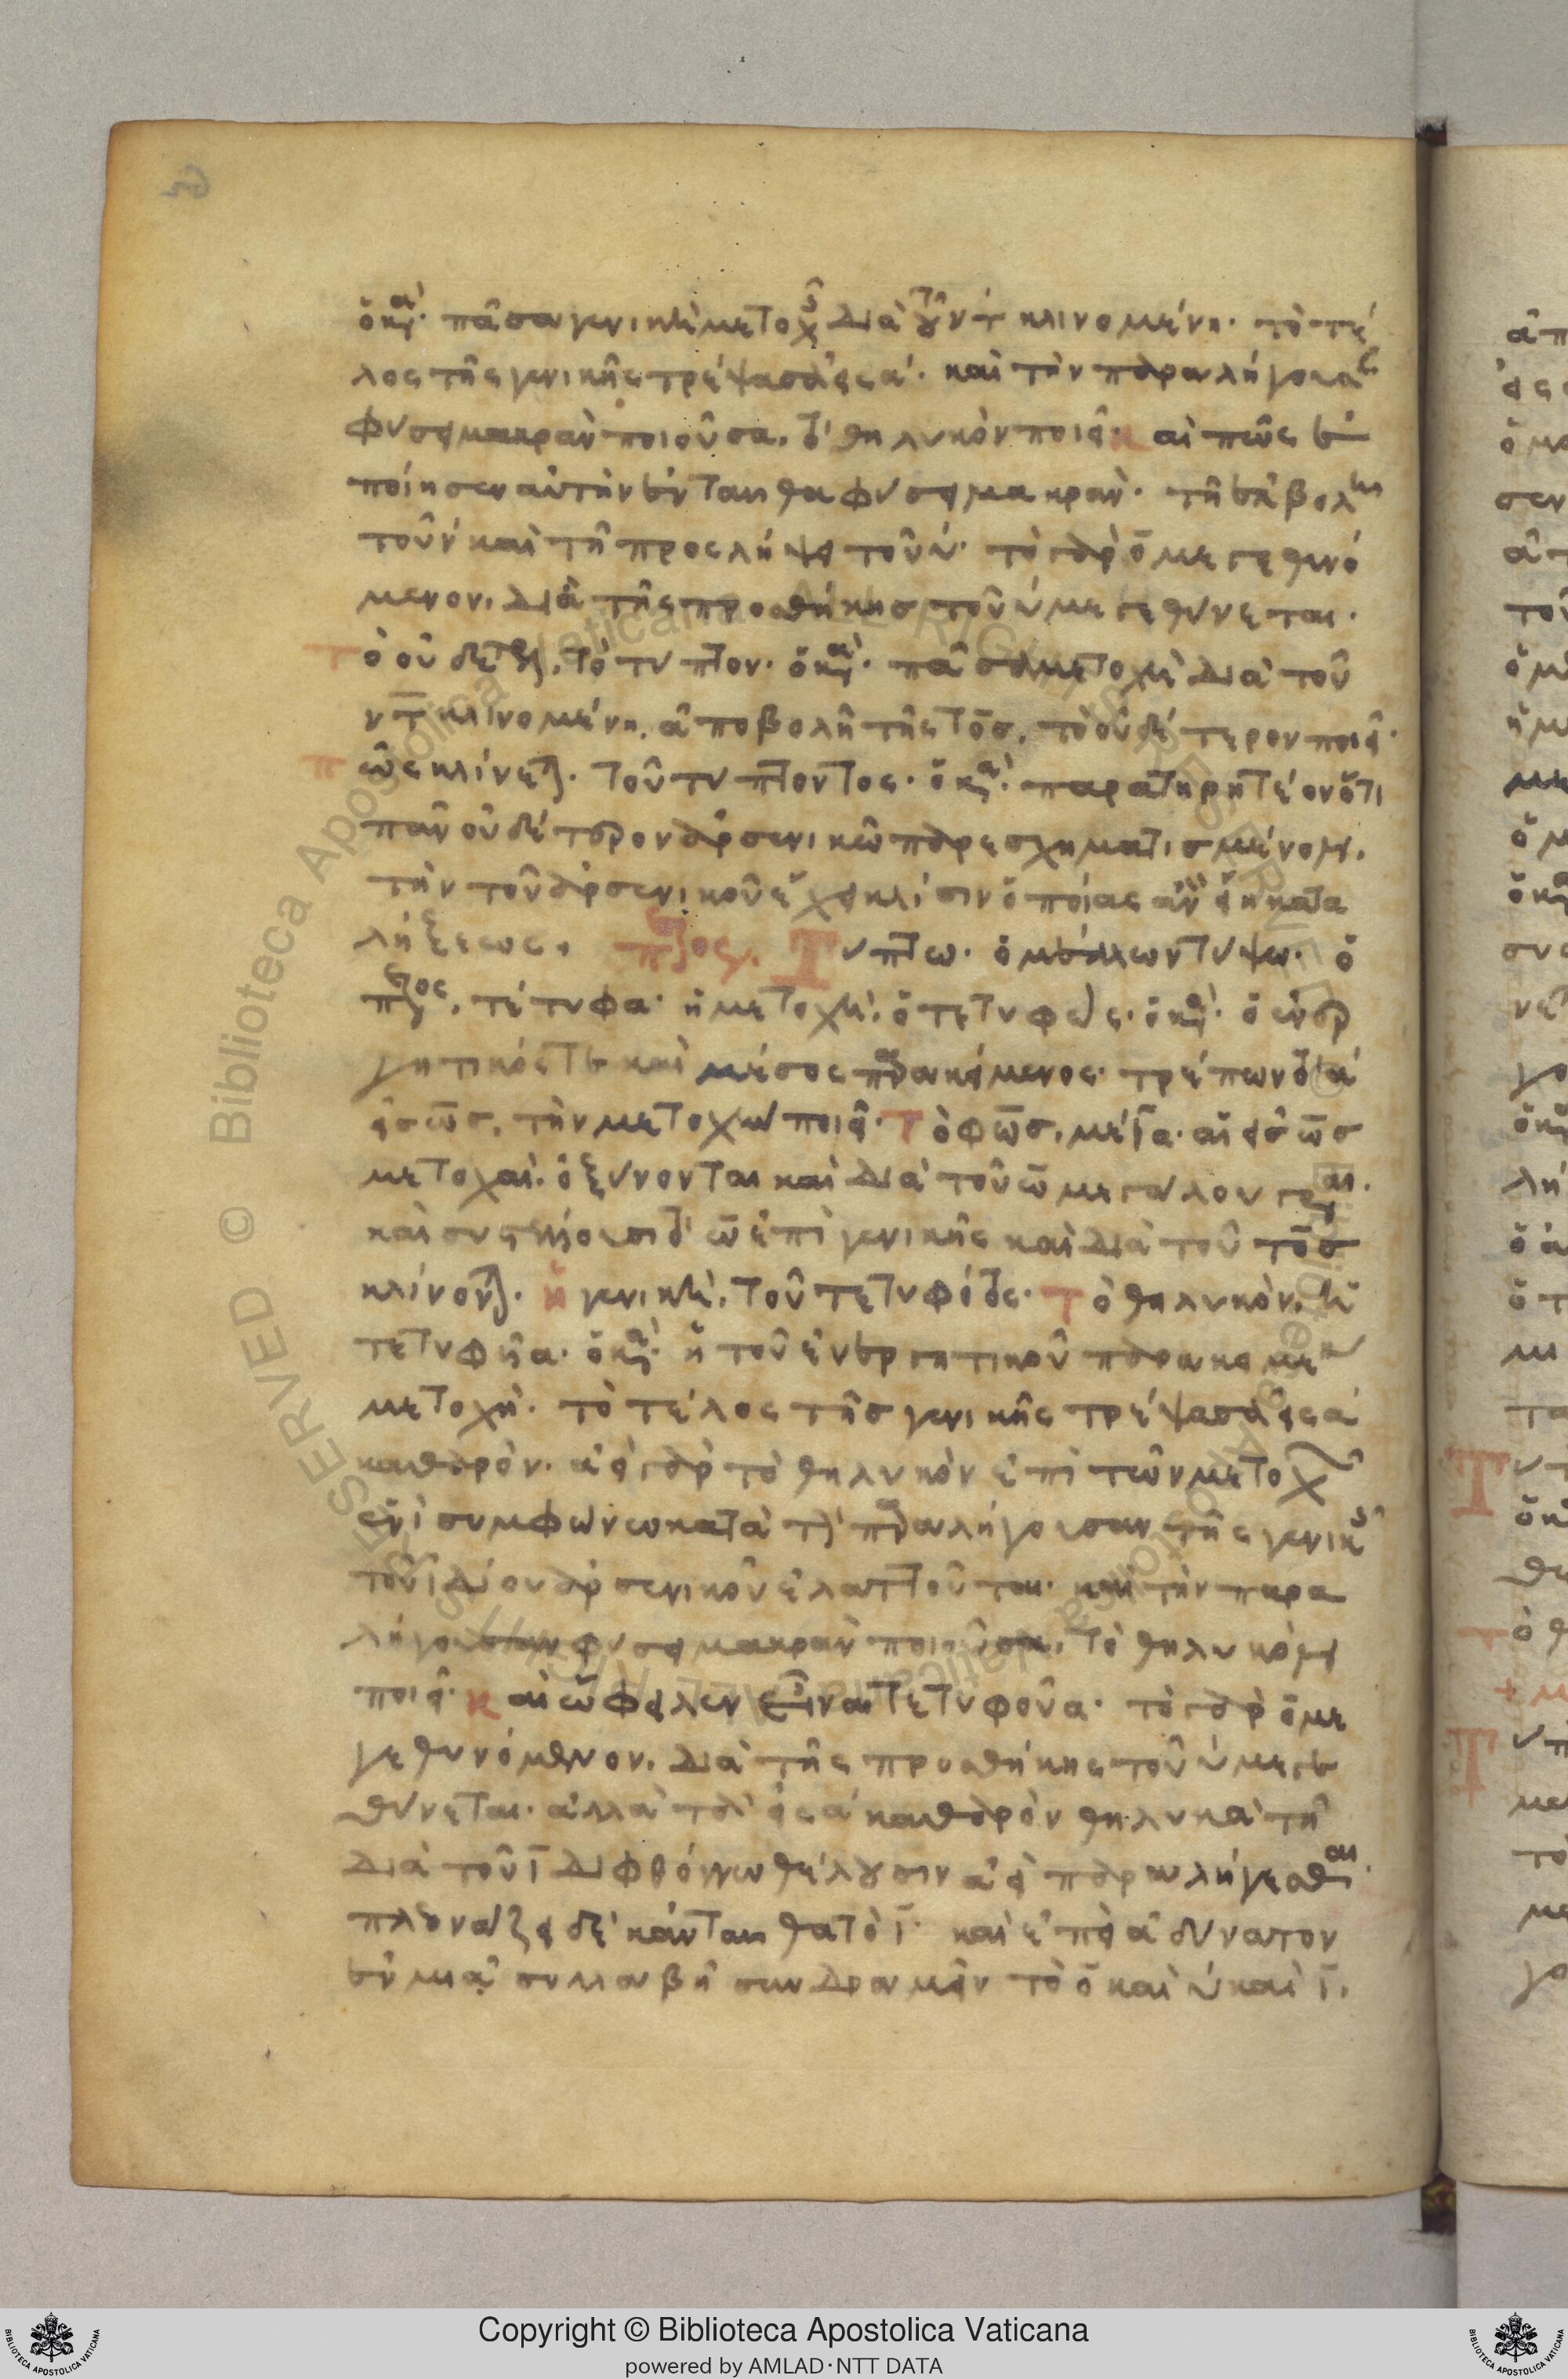 ὁ κα(νών)· πᾶσα γενικὴ μετοχῆς διὰ τοῦ ντ κλινομένη· τὸ τέ
λος τῆς γενικῆς τρέψασα εἰς α· καὶ τὴν παραλήγουσαν
φύσει μακρὰν ποιοῦσα, τὸ θηλυκὸν ποιεῖ· καὶ πῶς ἐ
ποίησεν αὐτὴν ἐνταῦθα φύσει μακρὰν· τῇ ἐκβολῇ
τοῦ ν καὶ τῇ προσλήψει τοῦ υ· τὸ γὰρ ο μεγεθυνό
μενον, διὰ τῆς προσθήκης τοῦ υ μεγεθύνεται·
Τὸ οὐδέτερον, τὸ τύπτον· ὁ κα(νών)· πᾶσα μετοχὴ διὰ τοῦ
ντ κλινομένη, ἀποβολῇ τῆς τος, τὸ οὐδέτερον ποιεῖ·
πῶς κλίνεται· τοῦ τύπτοντος· ὁ κα(νών)· παρατηρητέον ὅτι
πᾶν οὐδέτερον ἀρσενικῷ παρεσχηματισμένον,
τὴν τοῦ ἀρσενικοῦ ἔχει κλίσιν ὁποίας ἂν εἴη κατα
λήξεως, Τύπτω· ὁ μέλλων τύψω· ὁ
τέτυφα· ἡ μετοχὴ, ὁ τετυφώς· ὁ κα(νών)· ὁ ἐνερ
γητικός τε καὶ μέσος παρακείμενος· τρέπων τὸ α
εἰς ως, τὴν μετοχὴν ποιεῖ· Τὸ φως, μέγα· αἱ εἰς ως
μετοχαὶ, ὀξύνονται καὶ διὰ τοῦ ω μεγάλου γράφονται·
καὶ συστέλλουσι τὸ ω ἐπὶ γενικῆς καὶ διὰ τοῦ τος
κλίνονται· ἡ γενικὴ, τοῦ τετυφότος· Τὸ θηλυκὸν, ἡ
τετυφῦα· ὁ κα(νών)· ἡ τοῦ ἐνεργητικοῦ παρακειμένου
μετοχὴ· τὸ τέλος τῆς γενικῆς τρέψασα εἰς α
καθαρὸν· ἀεὶ γὰρ τὸ θηλυκὸν ἐπὶ τῶν μετοχῶν
ἑνὶ συμφώνῳ κατὰ τὴν παραλήγουσαν τῆς γενικῆς
τοῦ ἰδίου ἀρσενικοῦ ἐλαττοῦται· καὶ τὴν παρα
λήγουσαν φύσει μακρὰν ποιοῦσα, τὸ θηλυκὸν
ποιεῖ· καὶ ὤφειλεν εἶναι τετυφοῦα· τὸ γὰρ ο με
γεθυνόμενον, διὰ τῆς προσθήκης τοῦ υ μεγε
θύνεται· ἀλλὰ τὰ εἰς α καθαρὸν θηλυκὰ τῇ
διὰ τοῦ ι διφθόγγω θέλουσιν ἀεὶ παραλήγεσθαι·
πλεονάζει δὲ κἀνταῦθα τὸ ι· καὶ ἐπεὶ ἀδύνατον
ἐν μιᾷ συλλαβῇ συνδραμεῖν τὸ ο καὶ υ καὶ ι,
Copyright © Biblioteca Apostolica Vaticana
powered by AMLAD·NTT DATA